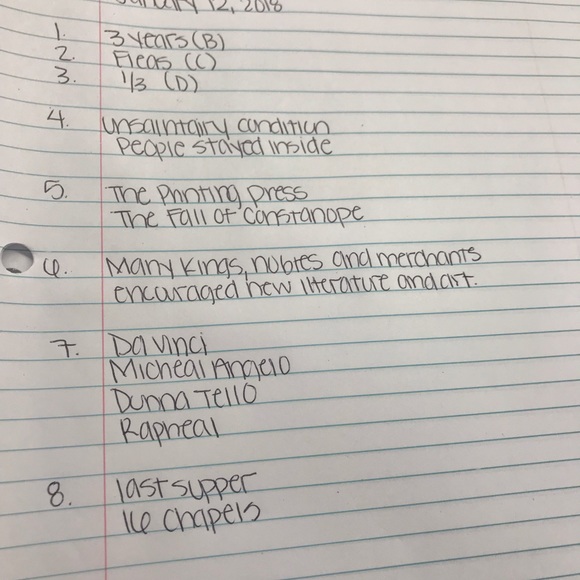 January 12, 2018
1. 3 years (B)
2. Fleas (C)
3. 1/3 (D)
4. unsaintairy condition
People stayed inside
5. The Printing press
The Fall of Constanope
6. Many kings, nobles and merchants
encouraged new literature and art.
7. Da Vinci
Micheal Angelo
Dunna Tello
Rapheal
8. last supper
16 chapels